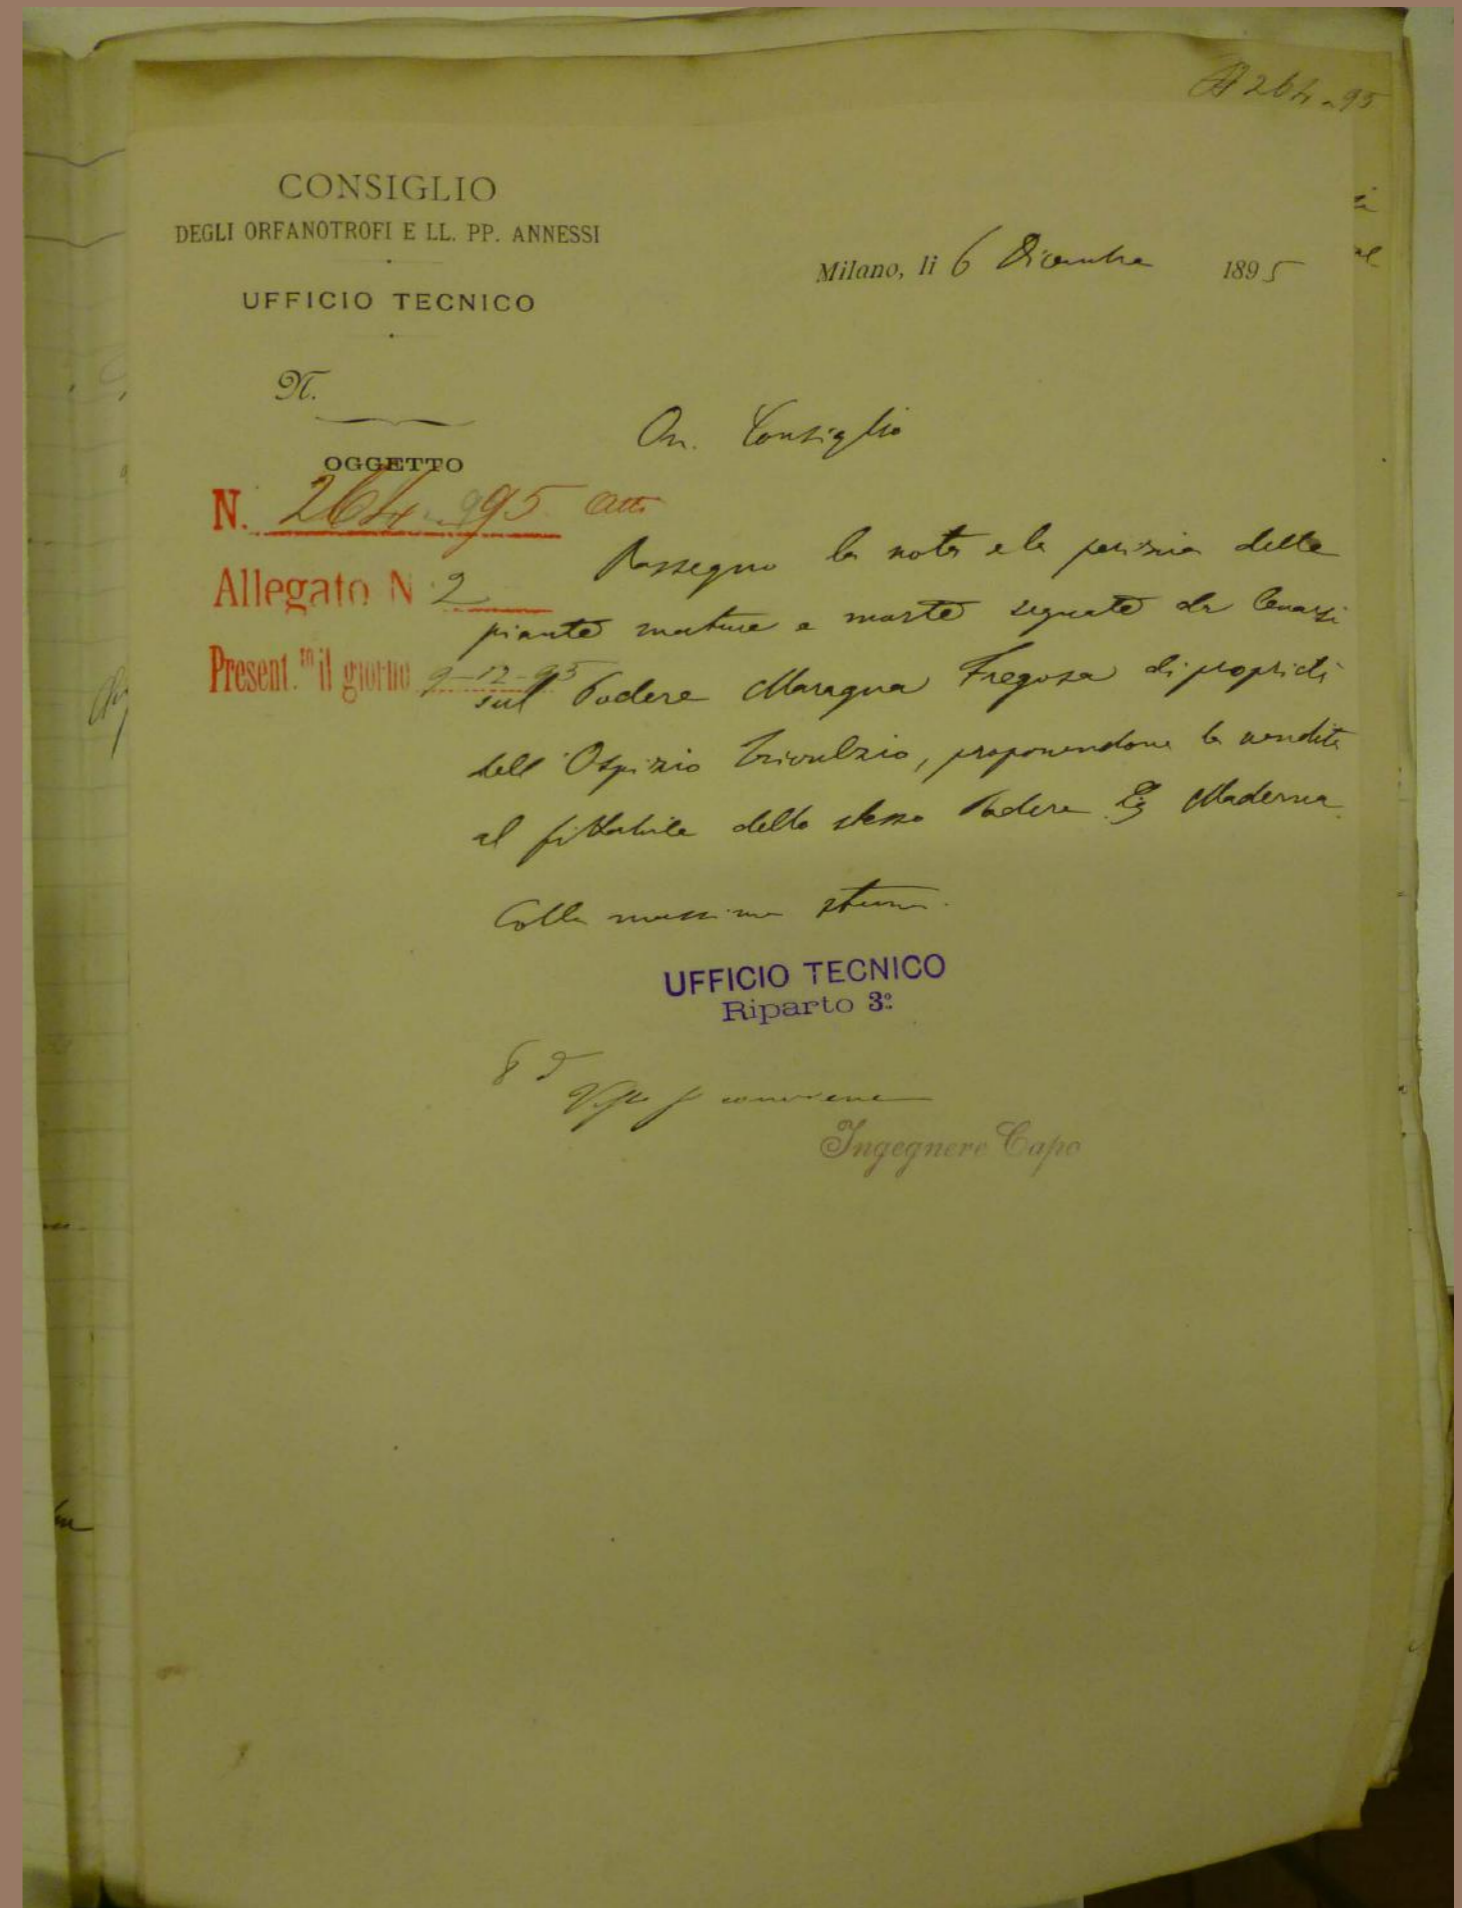 264-95
CONSIGLIO
DEGLI ORFANOTROFI E LL. PP. ANNESSI
UFFICIO TECNICO
Milano, li 6 Dicembre 1895
N.
On. Consiglio
OGGETTO
N. 264-95 Atti
Allegato N 2
Present.to il giorno 9-12-95
Rassegno la nota e la perizia delle
piante mature e morte segnate da levarsi
sul Podere Maragna Fregosa di proprietà
dell'Ospizio Trivulzio, proponendone la vendita
al fittabile dello stesso Podere Sig Maderna.
Colla massima stima.
UFFICIO TECNICO
Riparto 3º
Visto
Ingegnere Capo